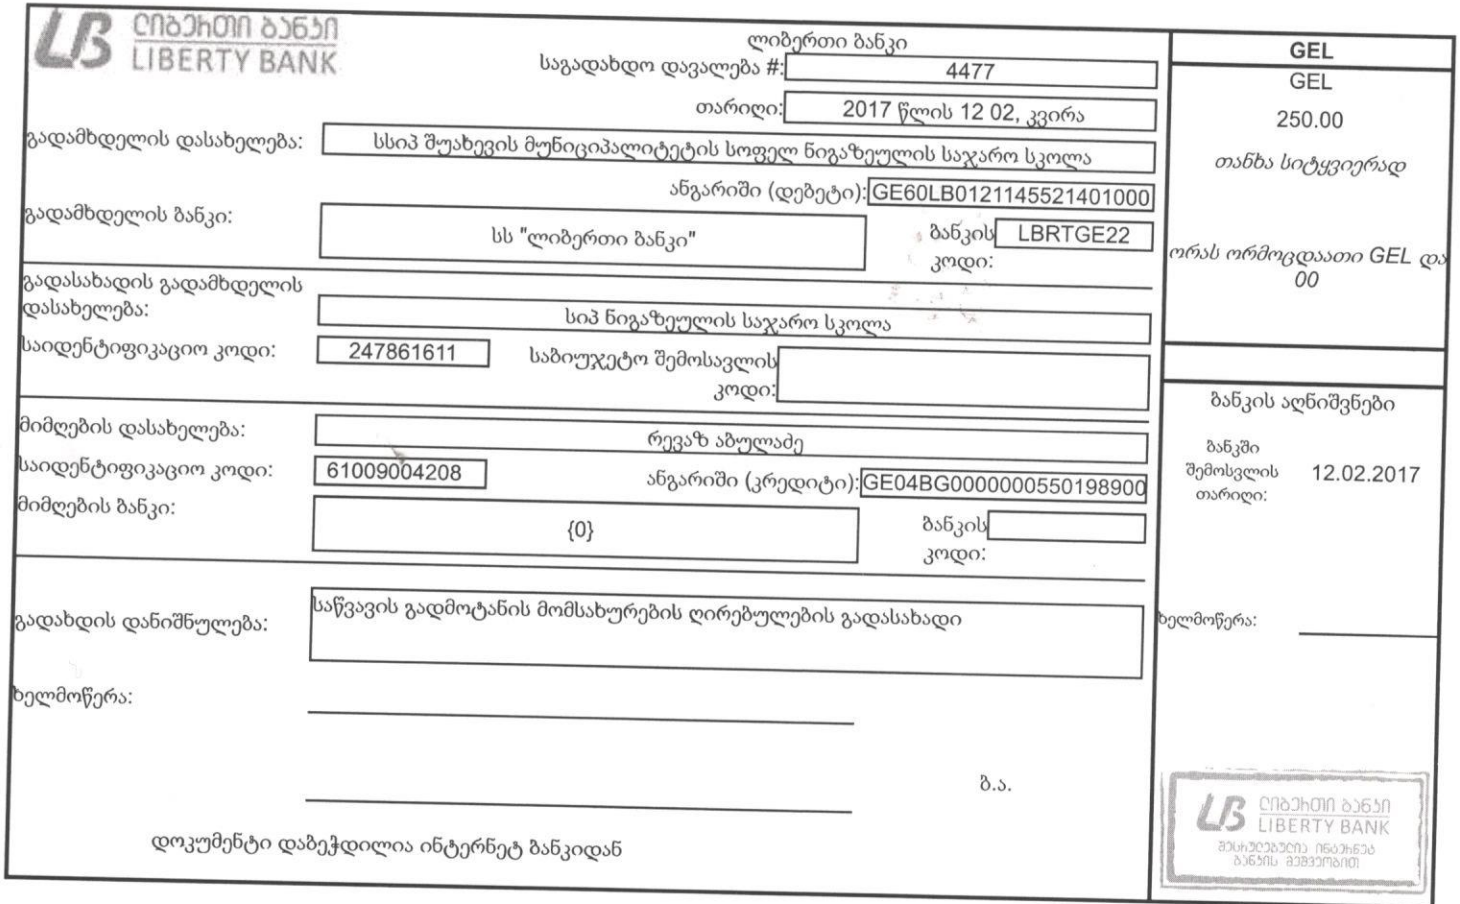 ლიბერთი ბანკი
LIBERTY BANK
ლიბერთი ბანკი
საგადახდო დავალება #: 4477
თარიღი: 2017 წლის 12 02, კვირა
გადამხდელის დასახელება: სსიპ შუახევის მუნიციპალიტეტის სოფელ ნიგაზეულის საჯარო სკოლა
ანგარიში (დებეტი): GE60LB0121145521401000
გადამხდელის ბანკი: სს "ლიბერთი ბანკი"
ბანკის კოდი: LBRTGE22
გადასახადის გადამხდელის
დასახელება: სიპ ნიგაზეულის საჯარო სკოლა
საიდენტიფიკაციო კოდი: 247861611
საბიუჯეტო შემოსავლის
კოდი:
მიმღების დასახელება: რევაზ აბულაძე
საიდენტიფიკაციო კოდი: 61009004208
ანგარიში (კრედიტი): GE04BG0000000550198900
მიმღების ბანკი: {0}
ბანკის
კოდი:
გადახდის დანიშნულება: საწვავის გადმოტანის მომსახურების ღირებულების გადასახადი
ხელმოწერა:
ბ.ა.
დოკუმენტი დაბეჭდილია ინტერნეტ ბანკიდან
GEL
GEL
250.00
თანხა სიტყვიერად
ორას ორმოცდაათი GEL და
00
ბანკის აღნიშვნები
ბანკში
შემოსვლის 12.02.2017
თარიღი:
ხელმოწერა:
ლიბერთი ბანკი
LIBERTY BANK
შესრულებულია ინტერნეტ
ბანკის მეშვეობით